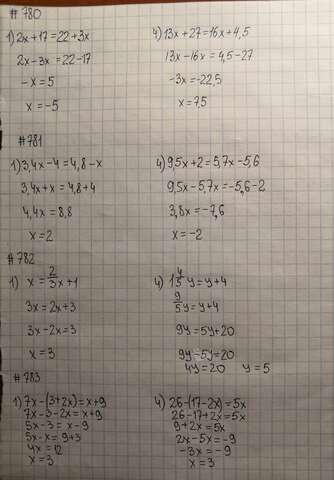 # 780
1) 2x + 17 = 22 + 3x
2x - 3x = 22 - 17
- x = 5
x = -5
4) 13x + 27 = 16x + 4,5
13x - 16x = 4,5 - 27
-3x = -22,5
x = 7,5
# 781
1) 3,4x - 4 = 4,8 - x
3,4x + x = 4,8 + 4
4,4x = 8,8
x = 2
4) 9,5x + 2 = 5,7x - 5,6
9,5x - 5,7x = -5,6 - 2
3,8x = -7,6
x = -2
# 782
1) x = 2/3 x + 1
3x = 2x + 3
3x - 2x = 3
x = 3
4) 1 4/5 y = y + 4
9/5 y = y + 4
9y = 5y + 20
9y - 5y = 20
4y = 20 y = 5
# 783
1) 7x - (3 + 2x) = x + 9
7x - 3 - 2x = x + 9
5x - 3 = x - 9
5x - x = 9 + 3
4x = 12
x = 3
4) 26 - (17 - 2x) = 5x
26 - 17 + 2x = 5x
9 + 2x = 5x
2x - 5x = -9
-3x = -9
x = 3